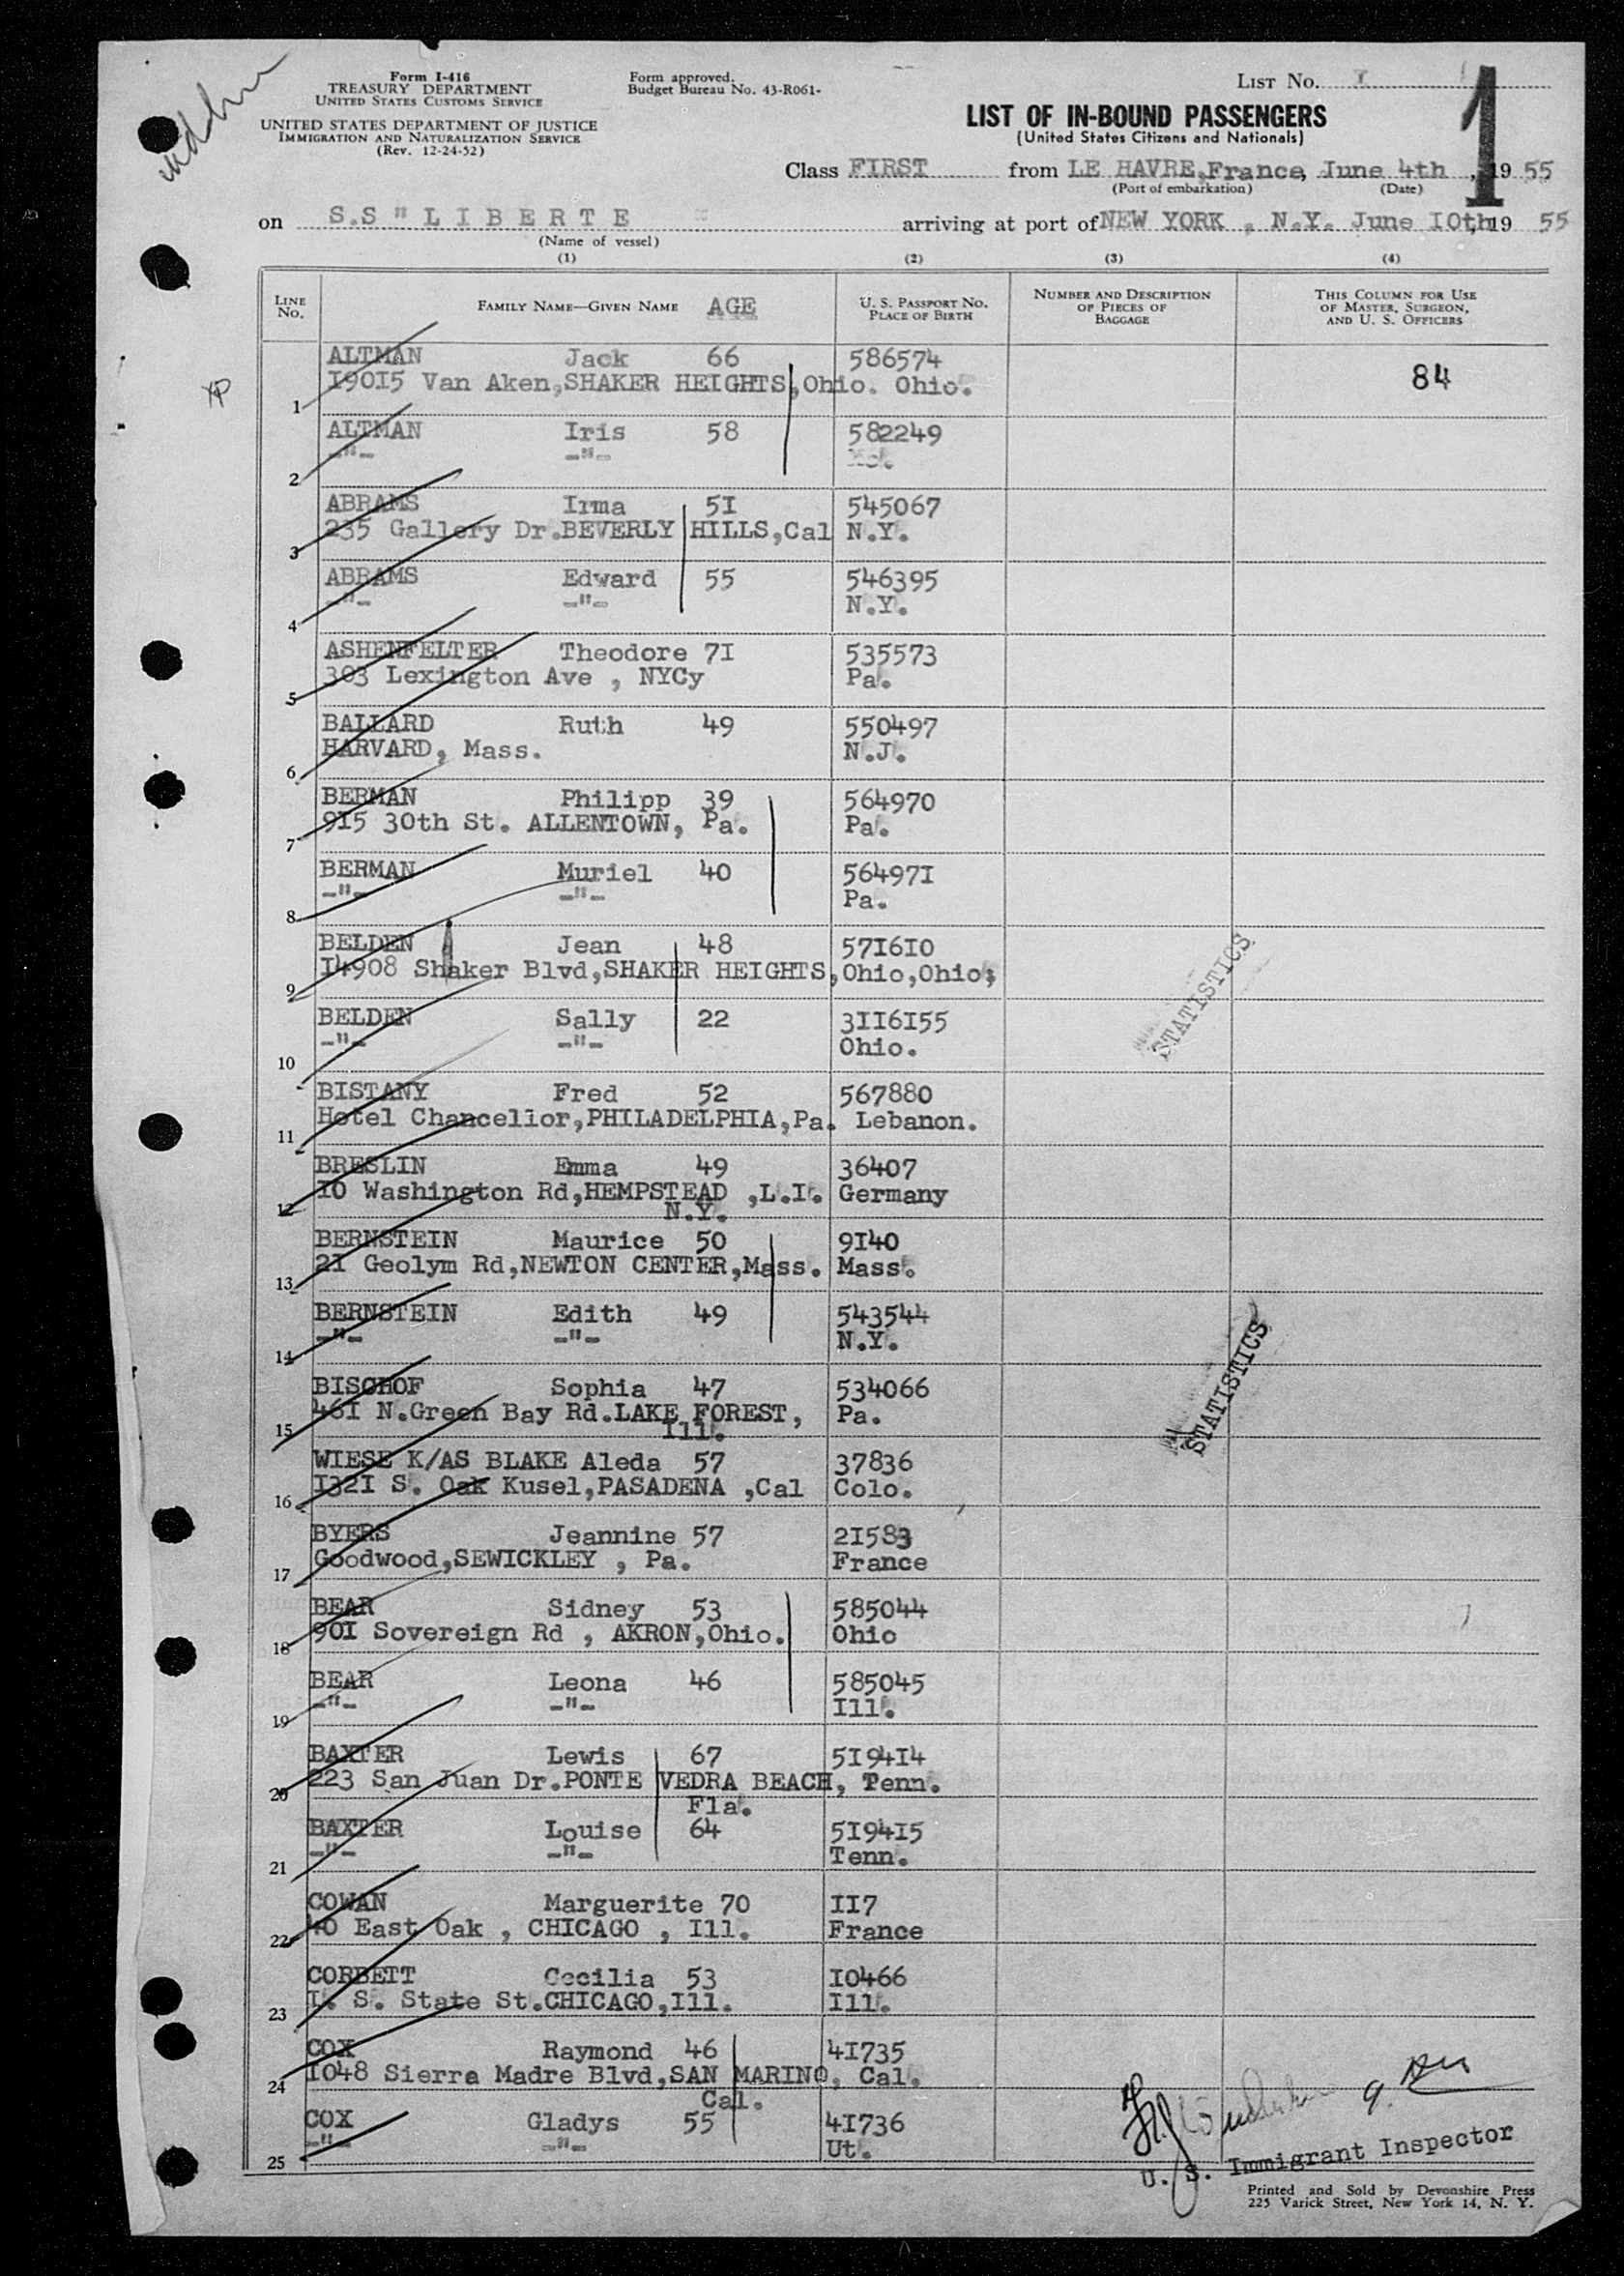 Form I-416
TREASURY DEPARTMENT
UNITED STATES CUSTOMS SERVICE
UNITED STATES DEPARTMENT OF JUSTICE
IMMIGRATION AND NATURALIZATION SERVICE
(Rev. 12-24-52)
Form approved.
Budget Bureau No. 43-R061-
LIST NO. I
1
LIST OF IN-BOUND PASSENGERS
(United States Citizens and Nationals)
Class FIRST from LE HAVRE,France, June 4th , 19 55
(Port of embarkation) (Date)
on S.S "LIBERTE " arriving at port of NEW YORK , N.Y. June I0th, 19 55
(Name of vessel)
(1) (2) (3) (4)
LINE No. FAMILY NAME—GIVEN NAME AGE U. S. PASSPORT NO. PLACE OF BIRTH NUMBER AND DESCRIPTION OF PIECES OF BAGGAGE THIS COLUMN FOR USE OF MASTER, SURGEON, AND U. S. OFFICERS
ALTMAN Jack 66 586574
1 I90I5 Van Aken,SHAKER HEIGHTS,Ohio. Ohio. 84
ALTMAN Iris 58 582249
2 -"- -"-
ABRAMS Irma 5I 545067
3 235 Gallery Dr.BEVERLY HILLS,Cal N.Y.
ABRAMS Edward 55 546395
4 -"- -"- N.Y.
ASHENFELTER Theodore 7I 535573
5 303 Lexington Ave , NYCy Pa.
BALLARD Ruth 49 550497
6 HARVARD, Mass. N.J.
BERMAN Philipp 39 564970
7 9I5 30th St. ALLENTOWN, Pa. Pa.
BERMAN Muriel 40 56497I
8 -"- -"- Pa.
BELDEN Jean 48 57I6I0
9 I4908 Shaker Blvd,SHAKER HEIGHTS,Ohio,Ohio,
BELDEN Sally 22 3II6I55
10 -"- -"- Ohio.
BISTANY Fred 52 567880
11 Hotel Chancellor,PHILADELPHIA,Pa. Lebanon.
BRESLIN Emma 49 36407
12 I0 Washington Rd,HEMPSTEAD ,L.I. Germany
N.Y.
BERNSTEIN Maurice 50 9I40
13 2I Geolym Rd,NEWTON CENTER,Mass. Mass.
BERNSTEIN Edith 49 543544
14 -"- -"- N.Y.
BISCHOF Sophia 47 534066
15 46I N.Green Bay Rd.LAKE FOREST, Pa.
Ill.
WIESE K/AS BLAKE Aleda 57 37836
16 I32I S. Oak Kusel,PASADENA ,Cal Colo.
BYERS Jeannine 57 2I583
17 Goodwood,SEWICKLEY , Pa. France
BEAR Sidney 53 585044
18 90I Sovereign Rd , AKRON,Ohio. Ohio
BEAR Leona 46 585045
19 -"- -"- Ill.
BAXTER Lewis 67 5I94I4
20 223 San Juan Dr.PONTE VEDRA BEACH, Tenn.
Fla.
BAXTER Louise 64 5I94I5
21 -"- -"- Tenn.
COWAN Marguerite 70 II7
22 40 East Oak , CHICAGO , Ill. France
CORBETT Cecilia 53 I0466
23 I. S. State St.CHICAGO,Ill. Ill.
COX Raymond 46 4I735
24 I048 Sierra Madre Blvd,SAN MARINO, Cal.
Cal.
COX Gladys 55 4I736
25 -"- -"- Ut.
STATISTICS
STATISTICS
U. S. Immigrant Inspector
Printed and Sold by Devonshire Press
225 Varick Street, New York 14, N. Y.